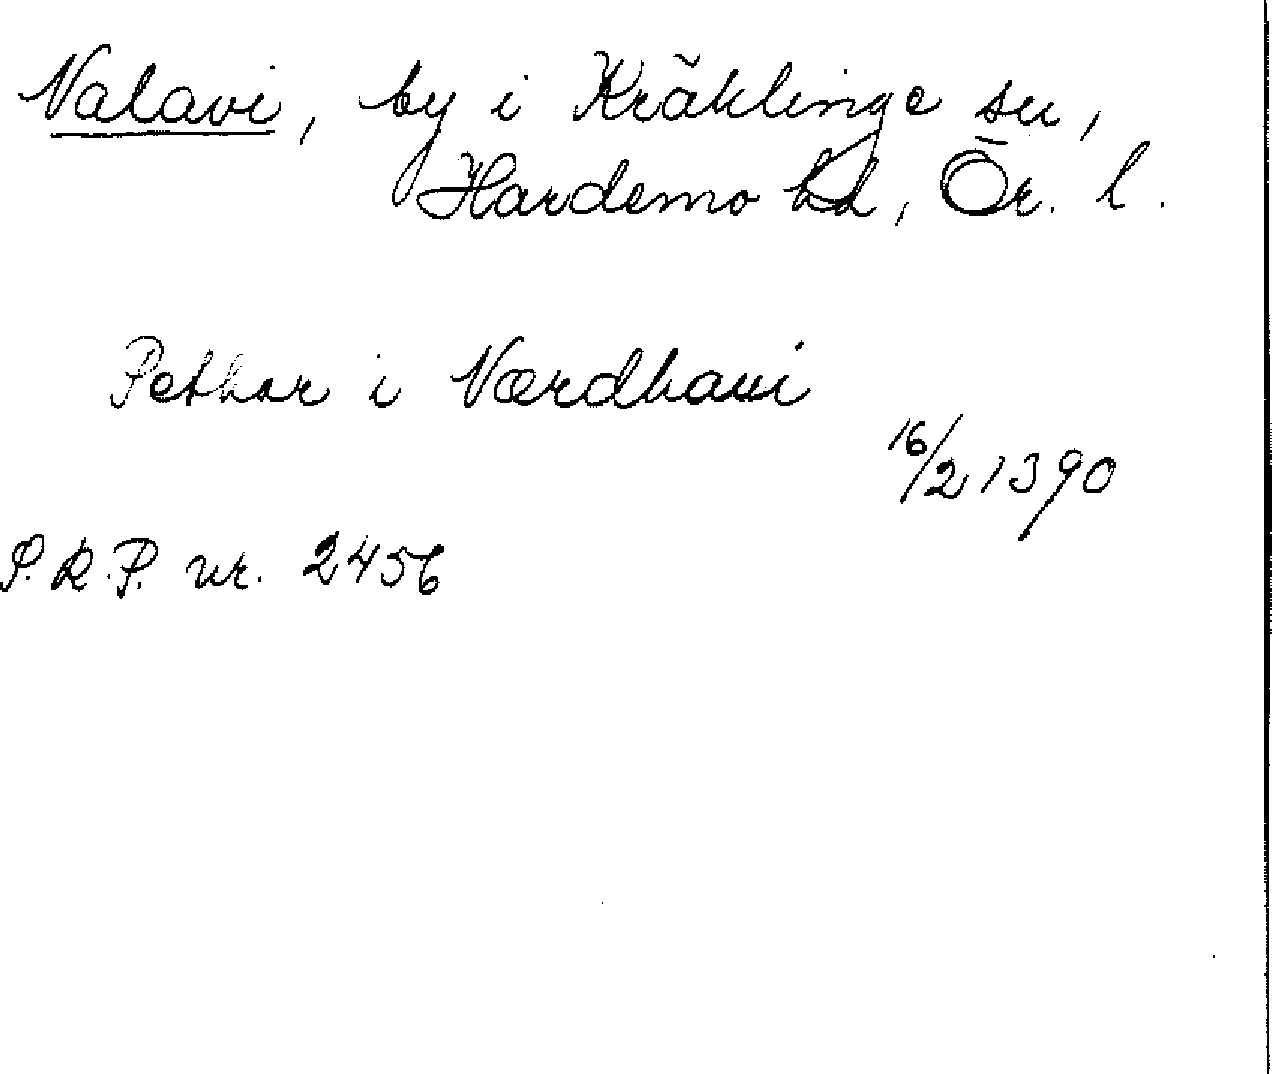 Nalavi, by i Kräklinge sn,
Hardemo hd, Ör. l.
Pethar i Nærdhaui
16/2 1390
S.R.P. nr. 2456